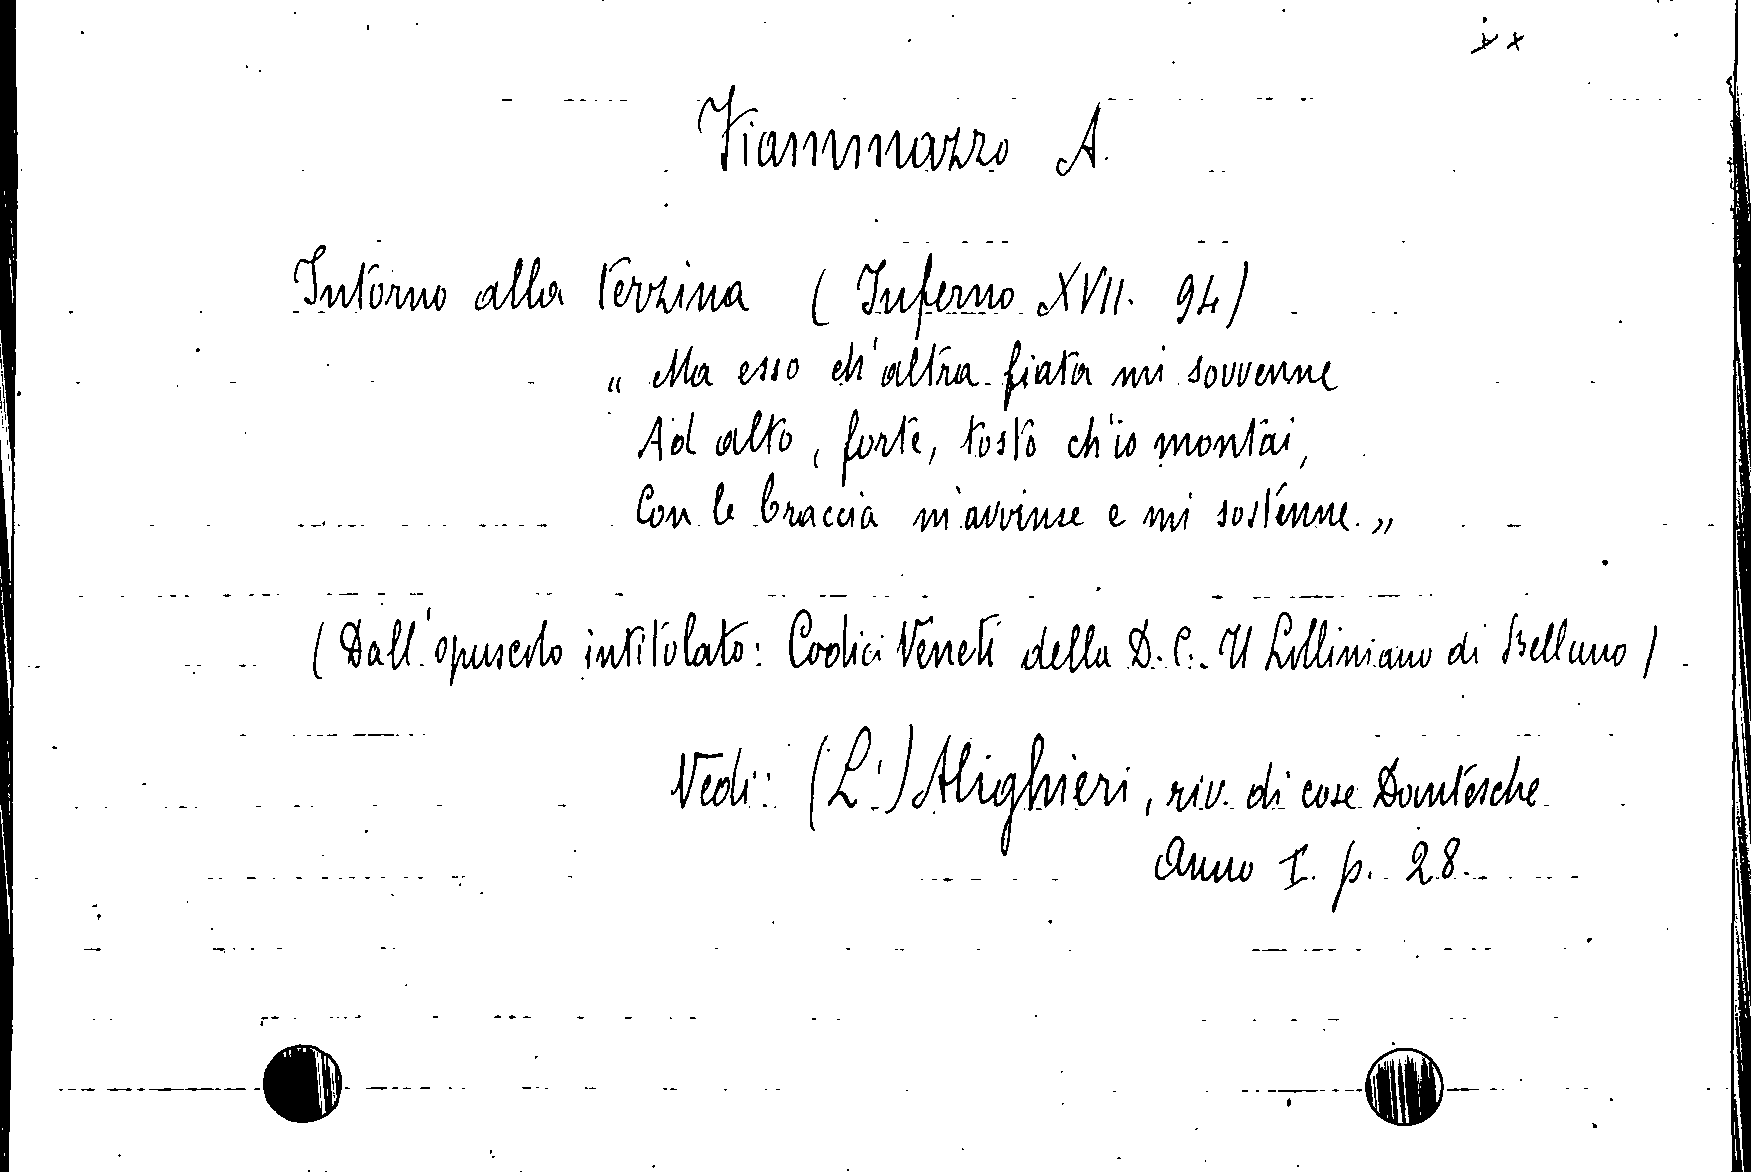 x x
Fiammazzo A.
Intorno alla terzina ( Inferno XVII. 94)
„ Ma esso ch'altra fiata mi sovvenne
Ad alto, forte, tosto ch'io montai,
Con le braccia m'avvinse e mi sostenne. „
( Dall'opuscolo intitolato: Codici Veneti della D. C. Il Lolliniano di Belluno )
Vedi: (L') Alighieri, riv. di cose Dantesche
Anno I. p. 28.